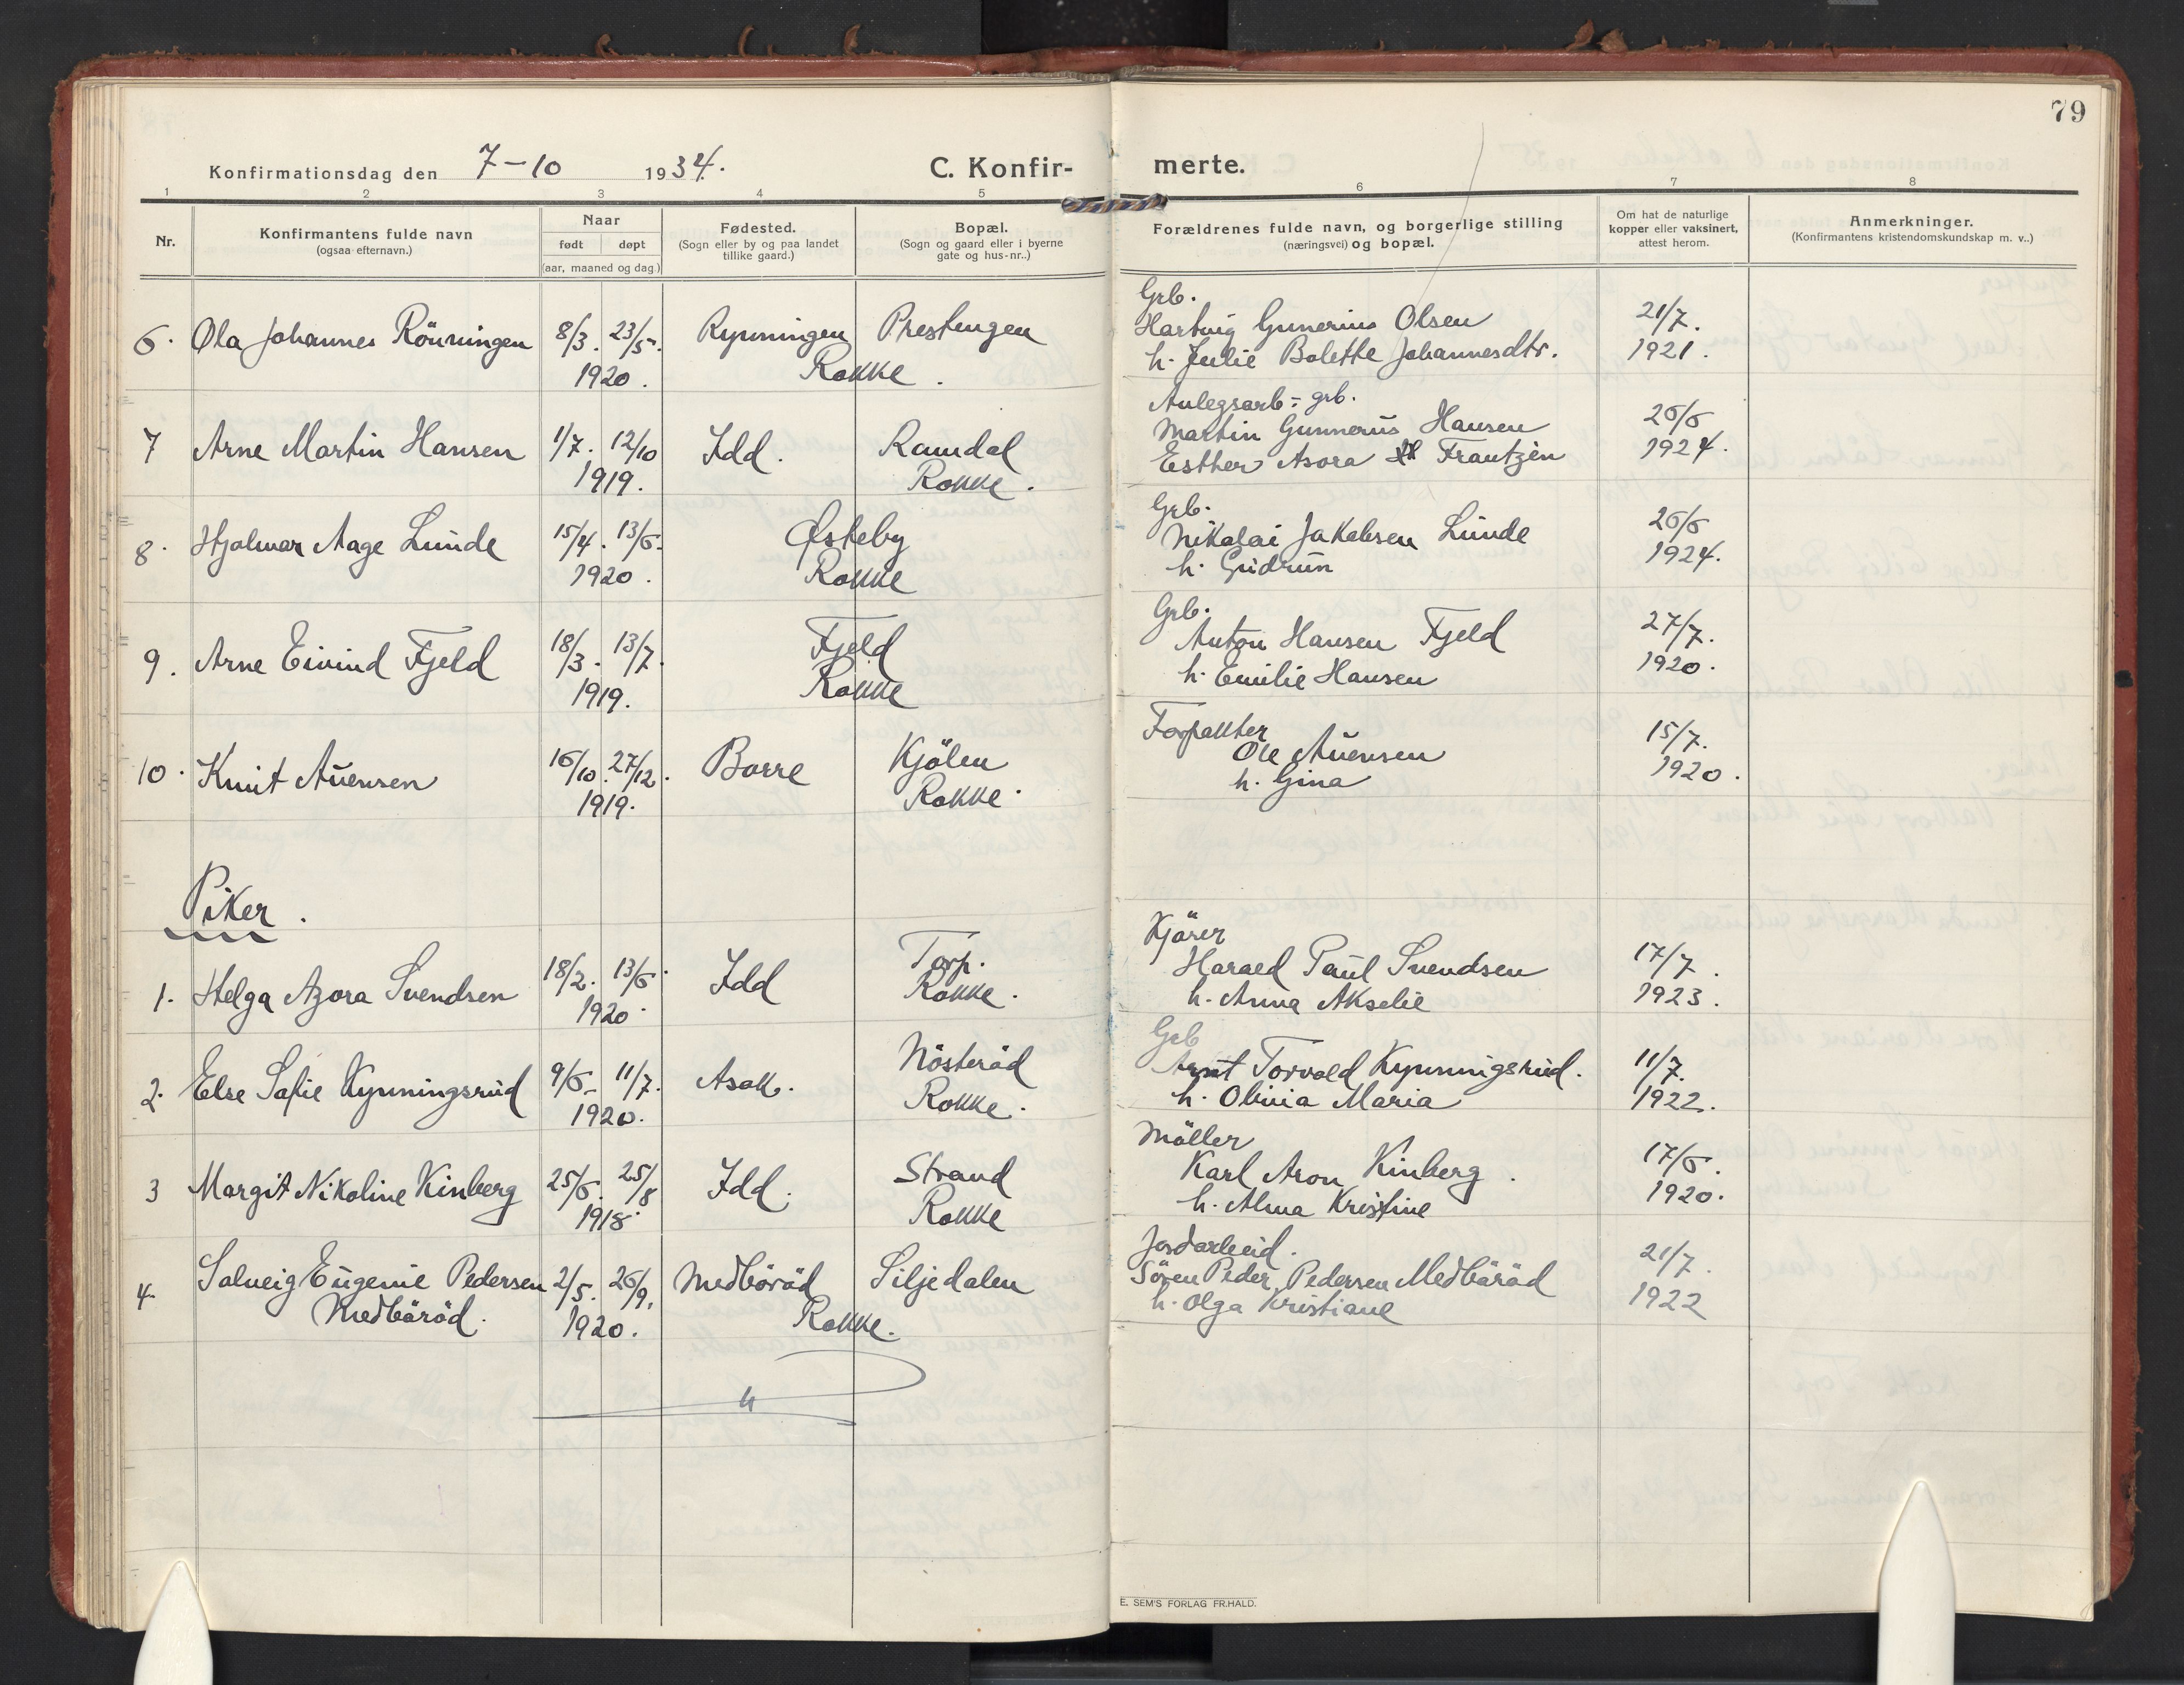 79
Konfirmationsdag den 7-10 1934.
C. Konfir- merte.
1 2 3 4 5 6 7 8
Nr.
Konfirmantens fulde navn
(ogsaa efternavn.)
Naar
født døpt
(aar, maaned og dag.)
Fødested.
(Sogn eller by og paa landet
tillike gaard.)
Bopæl.
(Sogn og gaard eller i byerne
gate og hus-nr..)
Forældrenes fulde navn, og borgerlige stilling
(næringsvei) og bopæl.
Om hat de naturlige
kopper eller vaksinert,
attest herom.
Anmerkninger.
(Konfirmantens kristendomskundskap m. v..)
Grb.
6. Ola Johannes Rönningen 8/3. 23/5. Rynningen Prestengen Hartvig Gunerius Olsen 21/7.
1920. Rokke. h. Julie Bolette Johannesdtr. 1921.
Anlegsarb = grb.
7 Arne Martin Hansen 1/7. 12/10 Idd. Ramdal Martin Gunnerius Hansen 26/6
1919. Rokke. Esther Asora Frantzen 1924.
Grb.
8. Hjalmar Aage Lunde 15/4. 13/6. Østeby Nikolai Jakobsen Lunde 26/6
1920. Rokke h. Gudrun 1924.
Grb.
9. Arne Eivind Fjeld 18/3. 13/7. Fjeld Anton Hansen Fjeld 27/7.
1919. Rokke h. Emilie Hansen 1920.
Forpakter
10. Knut Auensen 16/10. 27/12. Borre Kjölen Ole Auensen 15/7.
1919. Rokke. h. Gina 1920.
Piker.
Kjörer
1. Helga Azora Svendsen 18/2. 13/6. Idd Torp. Harald Paul Svendsen 17/7.
1920. Rokke. h. Anna Akselie 1923.
Grb
2. Else Sofie Kynningsrud 9/6- 11/7. Asak. Nösteröd Arnt Torvald Kynningsrud. 11/7.
1920. Rokke. h. Olivia Maria 1922.
Möller
3 Margit Nikoline Kinberg 25/6. 25/8 Idd. Strand Karl Aron Kinberg. 17/6.
1918. Rokke h. Alma Kristine 1920.
Jordarbeid.
4. Solveig Eugenie Pedersen 2/5. 26/9. Medböröd Siljedalen Sören Peder Pedersen Medböröd 21/7.
Medböröd. 1920. Rokke. h. Olga Kristiane 1922
E. SEM'S FORLAG FR.HALD.